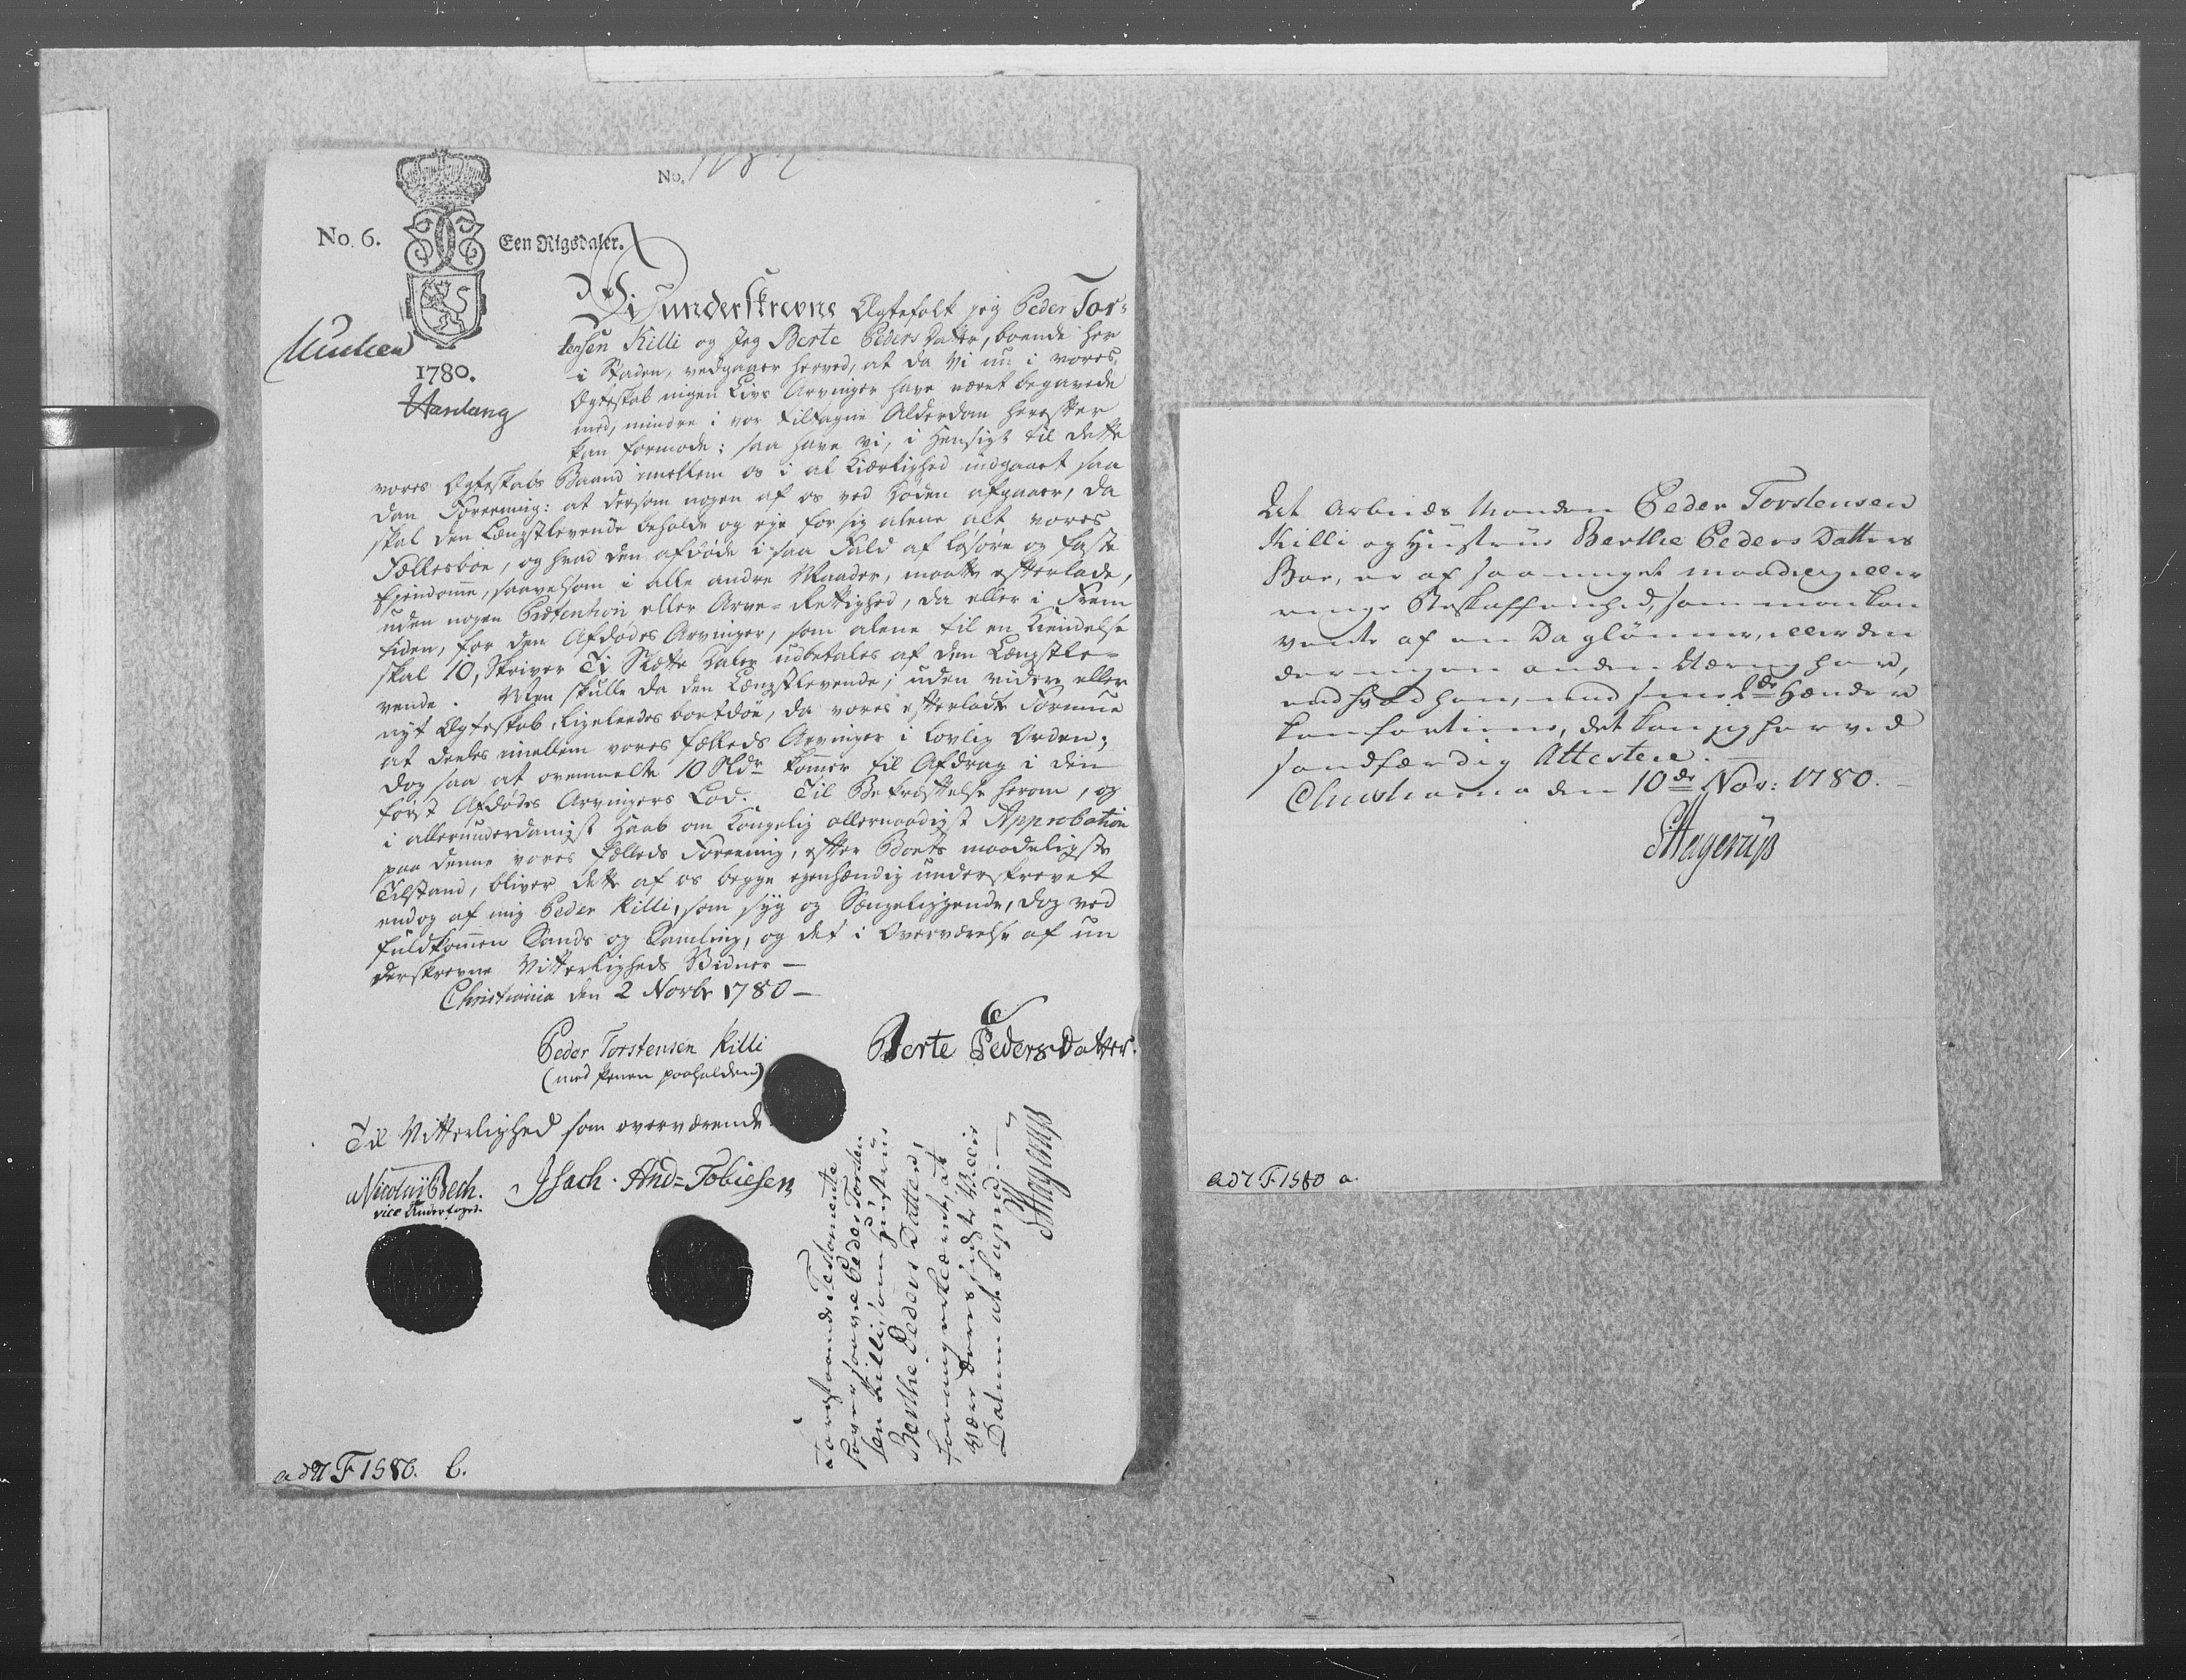 No. 1082
No. 6. Een Rigsdaler.
1780.
Vi underskrevne Ægtefolk jeg Peder Tor-
stensen Killi og Jeg Berte Peders Datter, boende her
i Staden, vedgaaer herved, at da vi nu i vores
Ægteskab ingen Livs Arvinger have været begavede
med, mindre i vor tiltagne Alderdom herefter
kan formode; saa have vi, i Hensigt til dette
vores Ægteskabs Baand imellem os i al Kiærlighed indgaaet saa
dan Foreening: at dersom nogen af os ved Døden afgaaer, da
skal den Længstlevende beholde og eje for sig alene alt vores
Fællesboe, og hvad den afdøde i saa Fald af løsøre og faste
Ejendomme, saavelsom i alle andre Maader, maatte efterlade,
uden nogen Prætention eller Arve-Rettighed, da eller i Frem
tiden, for den Afdødes Arvinger, som alene til en Kiendelse
skal 10, skriver Ti Slette Daler udbetales af den Længstle-
vende. Men skulle da den Længstlevende, uden videre eller
nyt Ægteskab, ligeleedes bortdøe, da vores efterladte Formue
at deeles imellem vores fælleds Arvinger i lovlig Orden;
dog saa at ovenmelte 10 Sldr kommer til Afdrag i den
først Afdødes Arvingers Lod. Til Bekræftelse herom, og
i allerunderdanigst Haab om Kongelig allernaadigst Approbation
paa denne vores fælleds Foreening, efter Boets maadeligste
Tilstand, bliver dette af os begge egenhændig underskrevet
endog af mig Peder Killi, som syg og Sængeliggende, dog ved
fuldkommen Sands og Samling, og det i Overværelse af un
derskrevne Vitterligheds Vidner —
Christiania den 2 Novbr 1780 —
Peder Torstensen Killi
(med penen paaholden)
Berte Peders Datter.
Til Vitterlighed som overværende
Nicolai Bech.
vice Underfoged.
Isach And= Tobiesen
Forestaaende Testamente
haver saavel Peder Torsten
sen Killi, som Hustrue
Berthe Peders Datter,
for mig erkiendt, at
være deres sidste Villie
Datum ut supra. —
SHagerup
ad N F 1580. b.
At Arbeids Manden Peder Torstensen
Killi og Hustrue Berthe Peders Datters
Boe, er af saa meget maadelig eller
ringe Beskaffenhed, som man kan
vente af en Daglønner, eller den
der ingen anden Næring har,
end hvad han, med sine 2de Hænder
kan fortiene, det kan jeg herved
sandfærdig Attestere.
Christiania den 10de Nov: 1780. —
SHagerup
ad N F 1580 a.